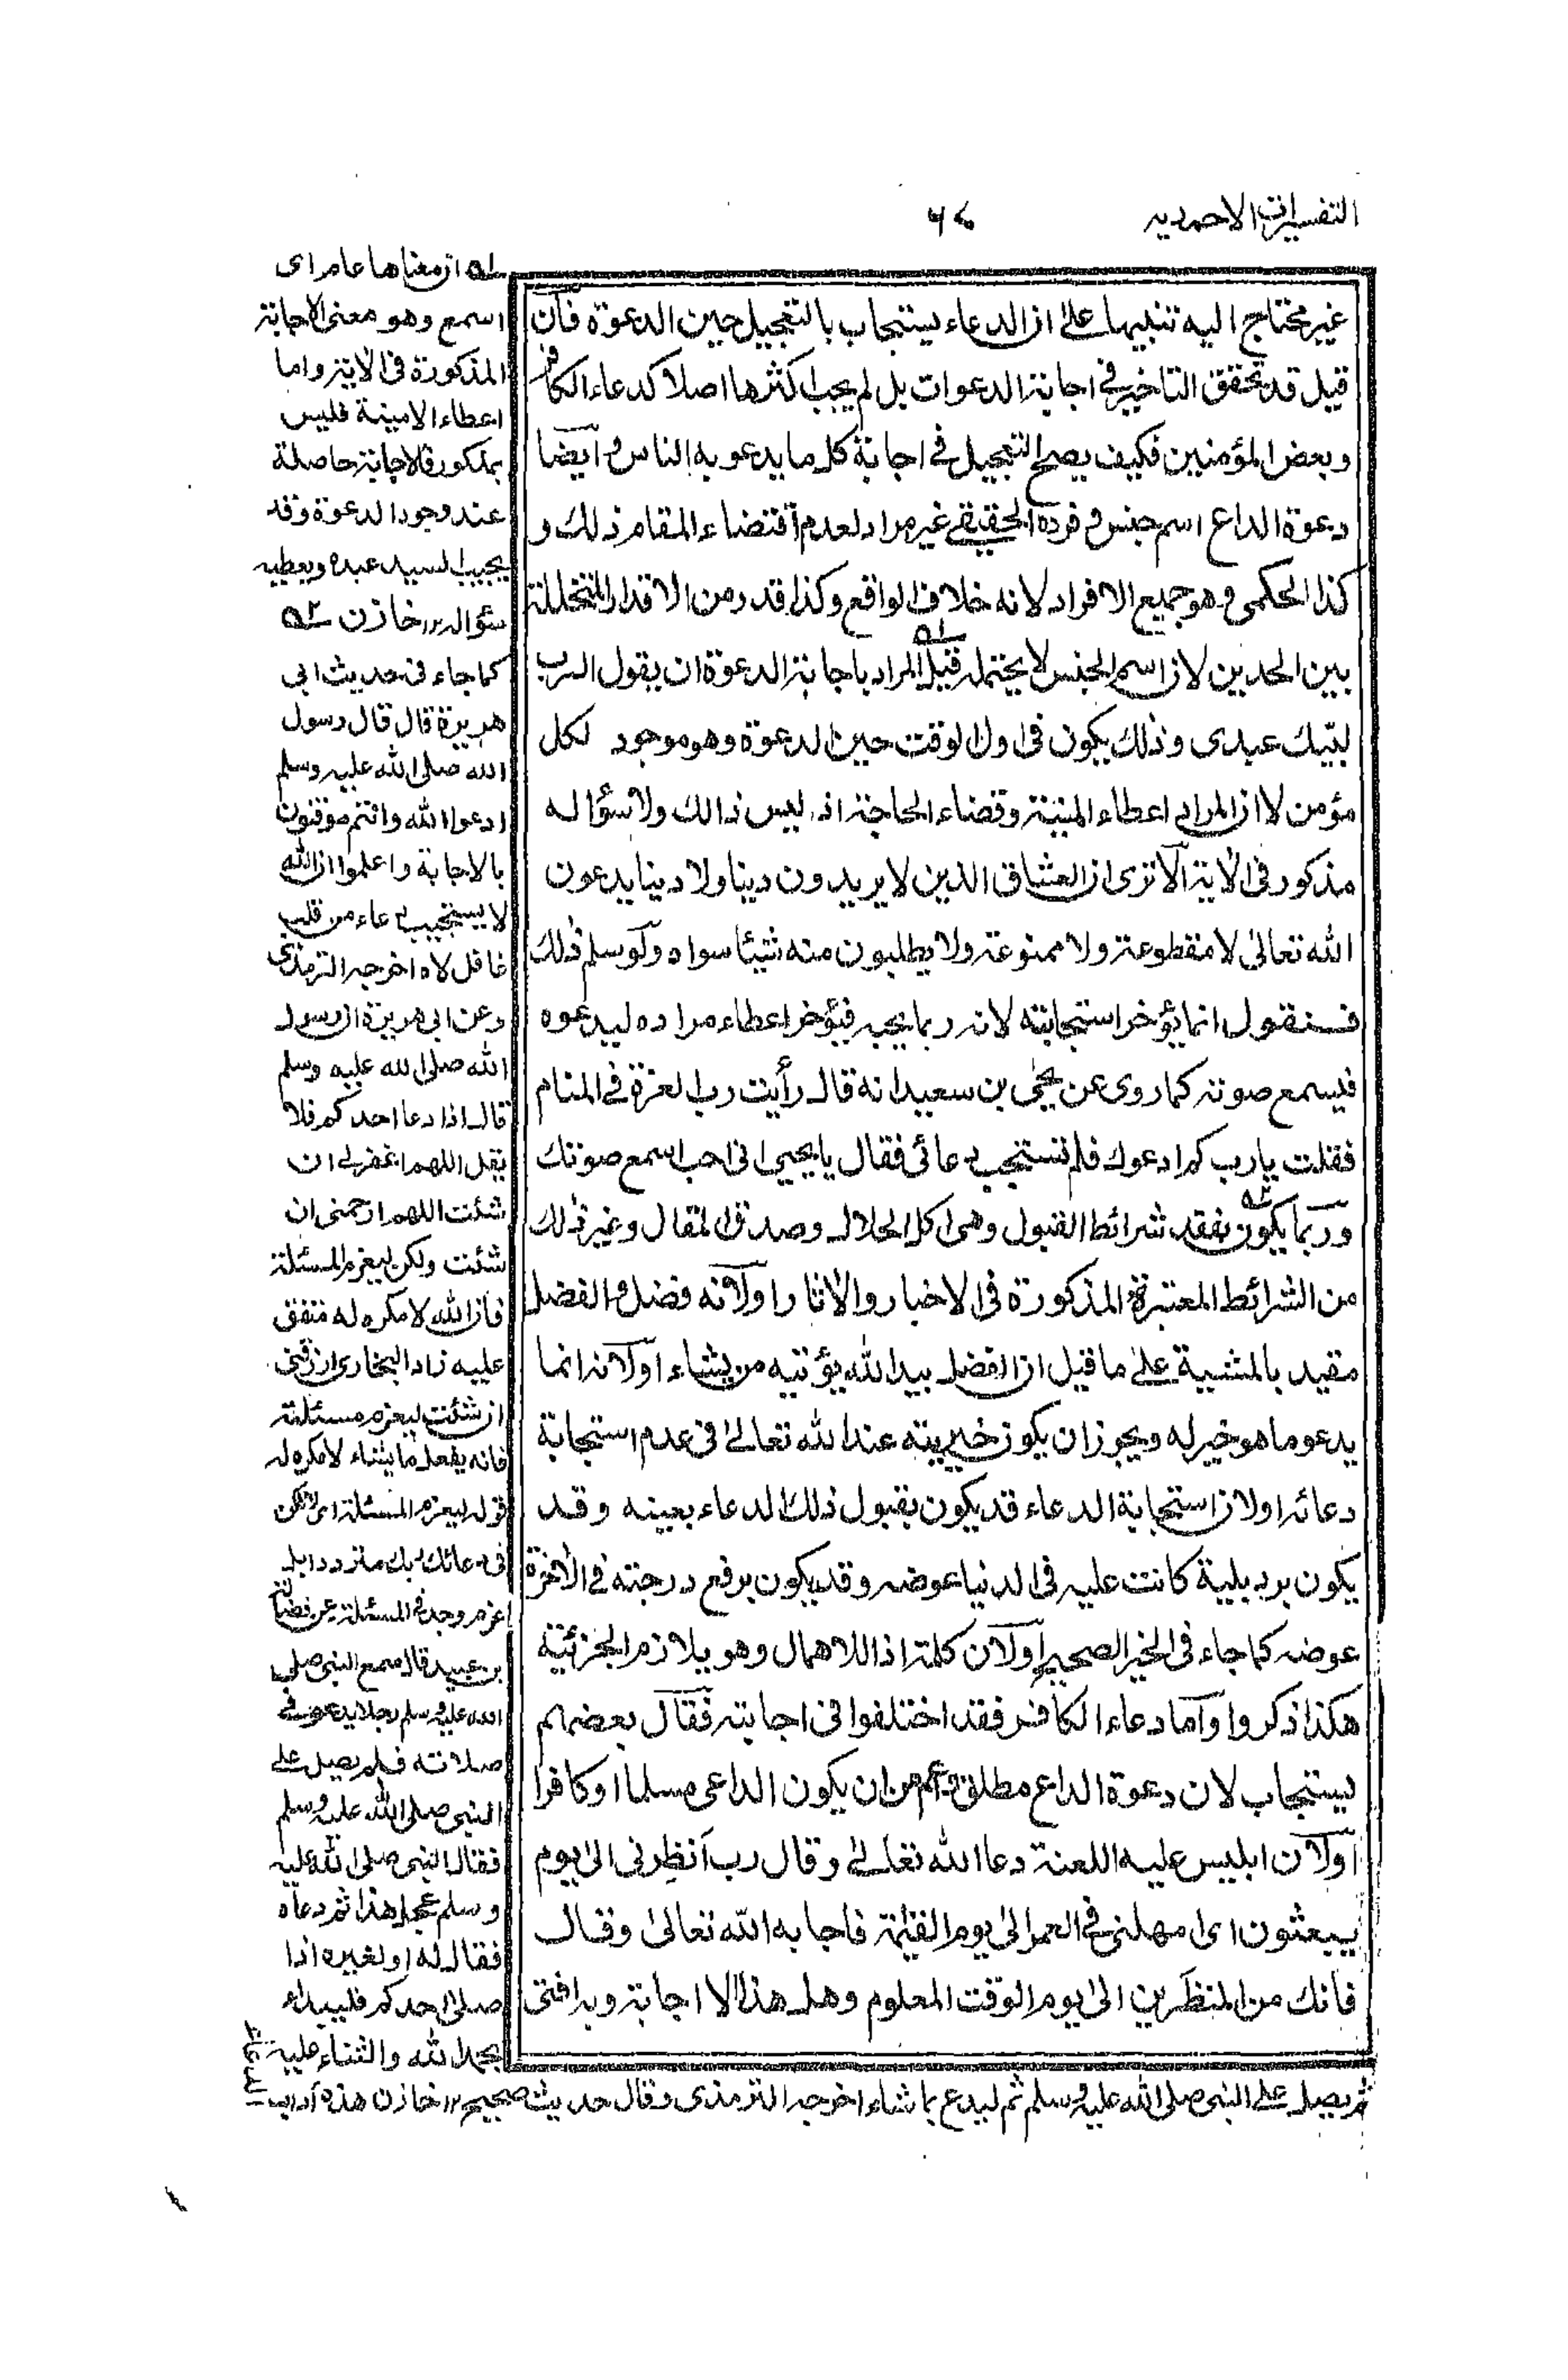 التفسيرات الاحمديه
غير محتاج اليه تنبيها على ان الدعاء يستجاب بالتعجيل حين الدعوة فان
قيل قد تحقق التاخير في اجابة الدعوات بل لم يجب اكثرها اصلا كدعاء الكافر
وبعض المؤمنين فكيف يصح التعجيل في اجابة كل ما يدعو به الناس وايضا
دعوة الداع اسم جنس وفرده الحقيقي غير مراد لعدم اقتضاء المقام ذلك و
كذا الحكمى وهو جميع الافراد لانه خلاف الواقع وكذا قدر من الاقدار المتخللة
بين الحدين لان اسم الجنس لا يحتمله قيل المراد باجابة الدعوة ان يقول الرب
لبيك عبدى وذلك يكون فى اول الوقت حين الدعوة وهو موجود لكل
مؤمن لا ان المراد اعطاء المنية وقضاء الحاجة اذ ليس ذالك ولا سؤاله
مذكور فى الاية الا ترى ان العشاق الذين لا يريدون دينا ولا دينا يدعون
الله تعالى لا مقطوعة ولا ممنوعة ولا يطلبون منه شيئا سواه ولو سلم ذلك
فنقول انما يؤخر استجابته لانه ربما يحبه فيؤخر اعطاء مراده ليدعوه
فيسمع صوته كما روى عن يحيى بن سعيد انه قال رأيت رب العزة في المنام
فقلت يارب كم ادعوك فلم تستجب دعائى فقال يا يحيى انى احب اسمع صوتك
وربما يكون بفقد شرائط القبول وهى اكل الحلال وصدق المقال وغير ذلك
من الشرائط المعتبرة المذكورة فى الاخبار والاثار اولانه فضل والفضل
مقيد بالمشية على ما قيل ان الفضل بيد الله يؤتيه من يشاء اولانه انما
يدعو ما هو خير له ويجوز ان يكون خيريته عند الله تعالى فى عدم استجابة
دعائه اولان استجابة الدعاء قد يكون بقبول ذلك الدعاء بعينه وقد
يكون برد بلية كانت عليه فى الدنيا عوضه وقد يكون برفع درجته في الاخرة
عوضه كما جاء فى الخبر الصحيح اولان كلمة اذا للاهمال وهو يلازم الجزئية
هكذا ذكروا واما دعاء الكافر فقد اختلفوا فى اجابته فقال بعضهم
يستجاب لان دعوة الداع مطلق واعم من ان يكون الداعى مسلما او كافرا
اولان ابليس عليه اللعنة دعا الله تعالى وقال رب انظرنى الى يوم
يبعثون اى امهلنى في العمر الى يوم القيمة فاجابه الله تعالى وقال
فانك من المنظرين الى يوم الوقت المعلوم وهل هذا الا اجابة وبه افتى
ان معناها عام اى
اسمع وهو معنى الاجابة
المذكورة فى الاية واما
اعطاء الامنية فليس
بمذكور فالاجابة حاصلة
عند وجود الدعوة وقد
يجيب السيد عبده ويعطيه
سؤاله ١٢ خازن
كما جاء فى حديث ابى
هريرة قال قال رسول
الله صلى الله عليه وسلم
ادعوا الله وانتم موقنون
بالاجابة واعلموا ان الله
لا يستجيب دعاء من قلب
غافل لاه اخرجه الترمذى
وعن ابى هريرة ان رسول
الله صلى الله عليه وسلم
قال اذا دعا احدكم فلا
يقل اللهم اغفر لى ان
شئت اللهم ارحمنى ان
شئت ولكن ليعزم المسئلة
فان الله لا مكره له متفق
عليه زاد البخارى ارزقنى
ان شئت ليعزم مسئلته
فانه يفعل ما يشاء لا مكره له
قوله ليعزم المسئلة اى لا تكن
فى دعائك ربك مترددا بل
اعزم وجد فى المسئلة عن فضالة
بن عبيد قال سمع النبى صلى
الله عليه وسلم رجلا يدعو في
صلاته فلم يصل على
النبى صلى الله عليه وسلم
فقال النبى صلى الله عليه
وسلم عجل هذا ثم دعاه
فقال له او لغيره اذا
صلى احدكم فليبدا
بحمد الله والثناء عليه
ثم يصل على النبى صلى الله عليه وسلم ثم ليدع بما شاء اخرجه الترمذى وقال حديث صحيح ١٢ خازن هذه آداب